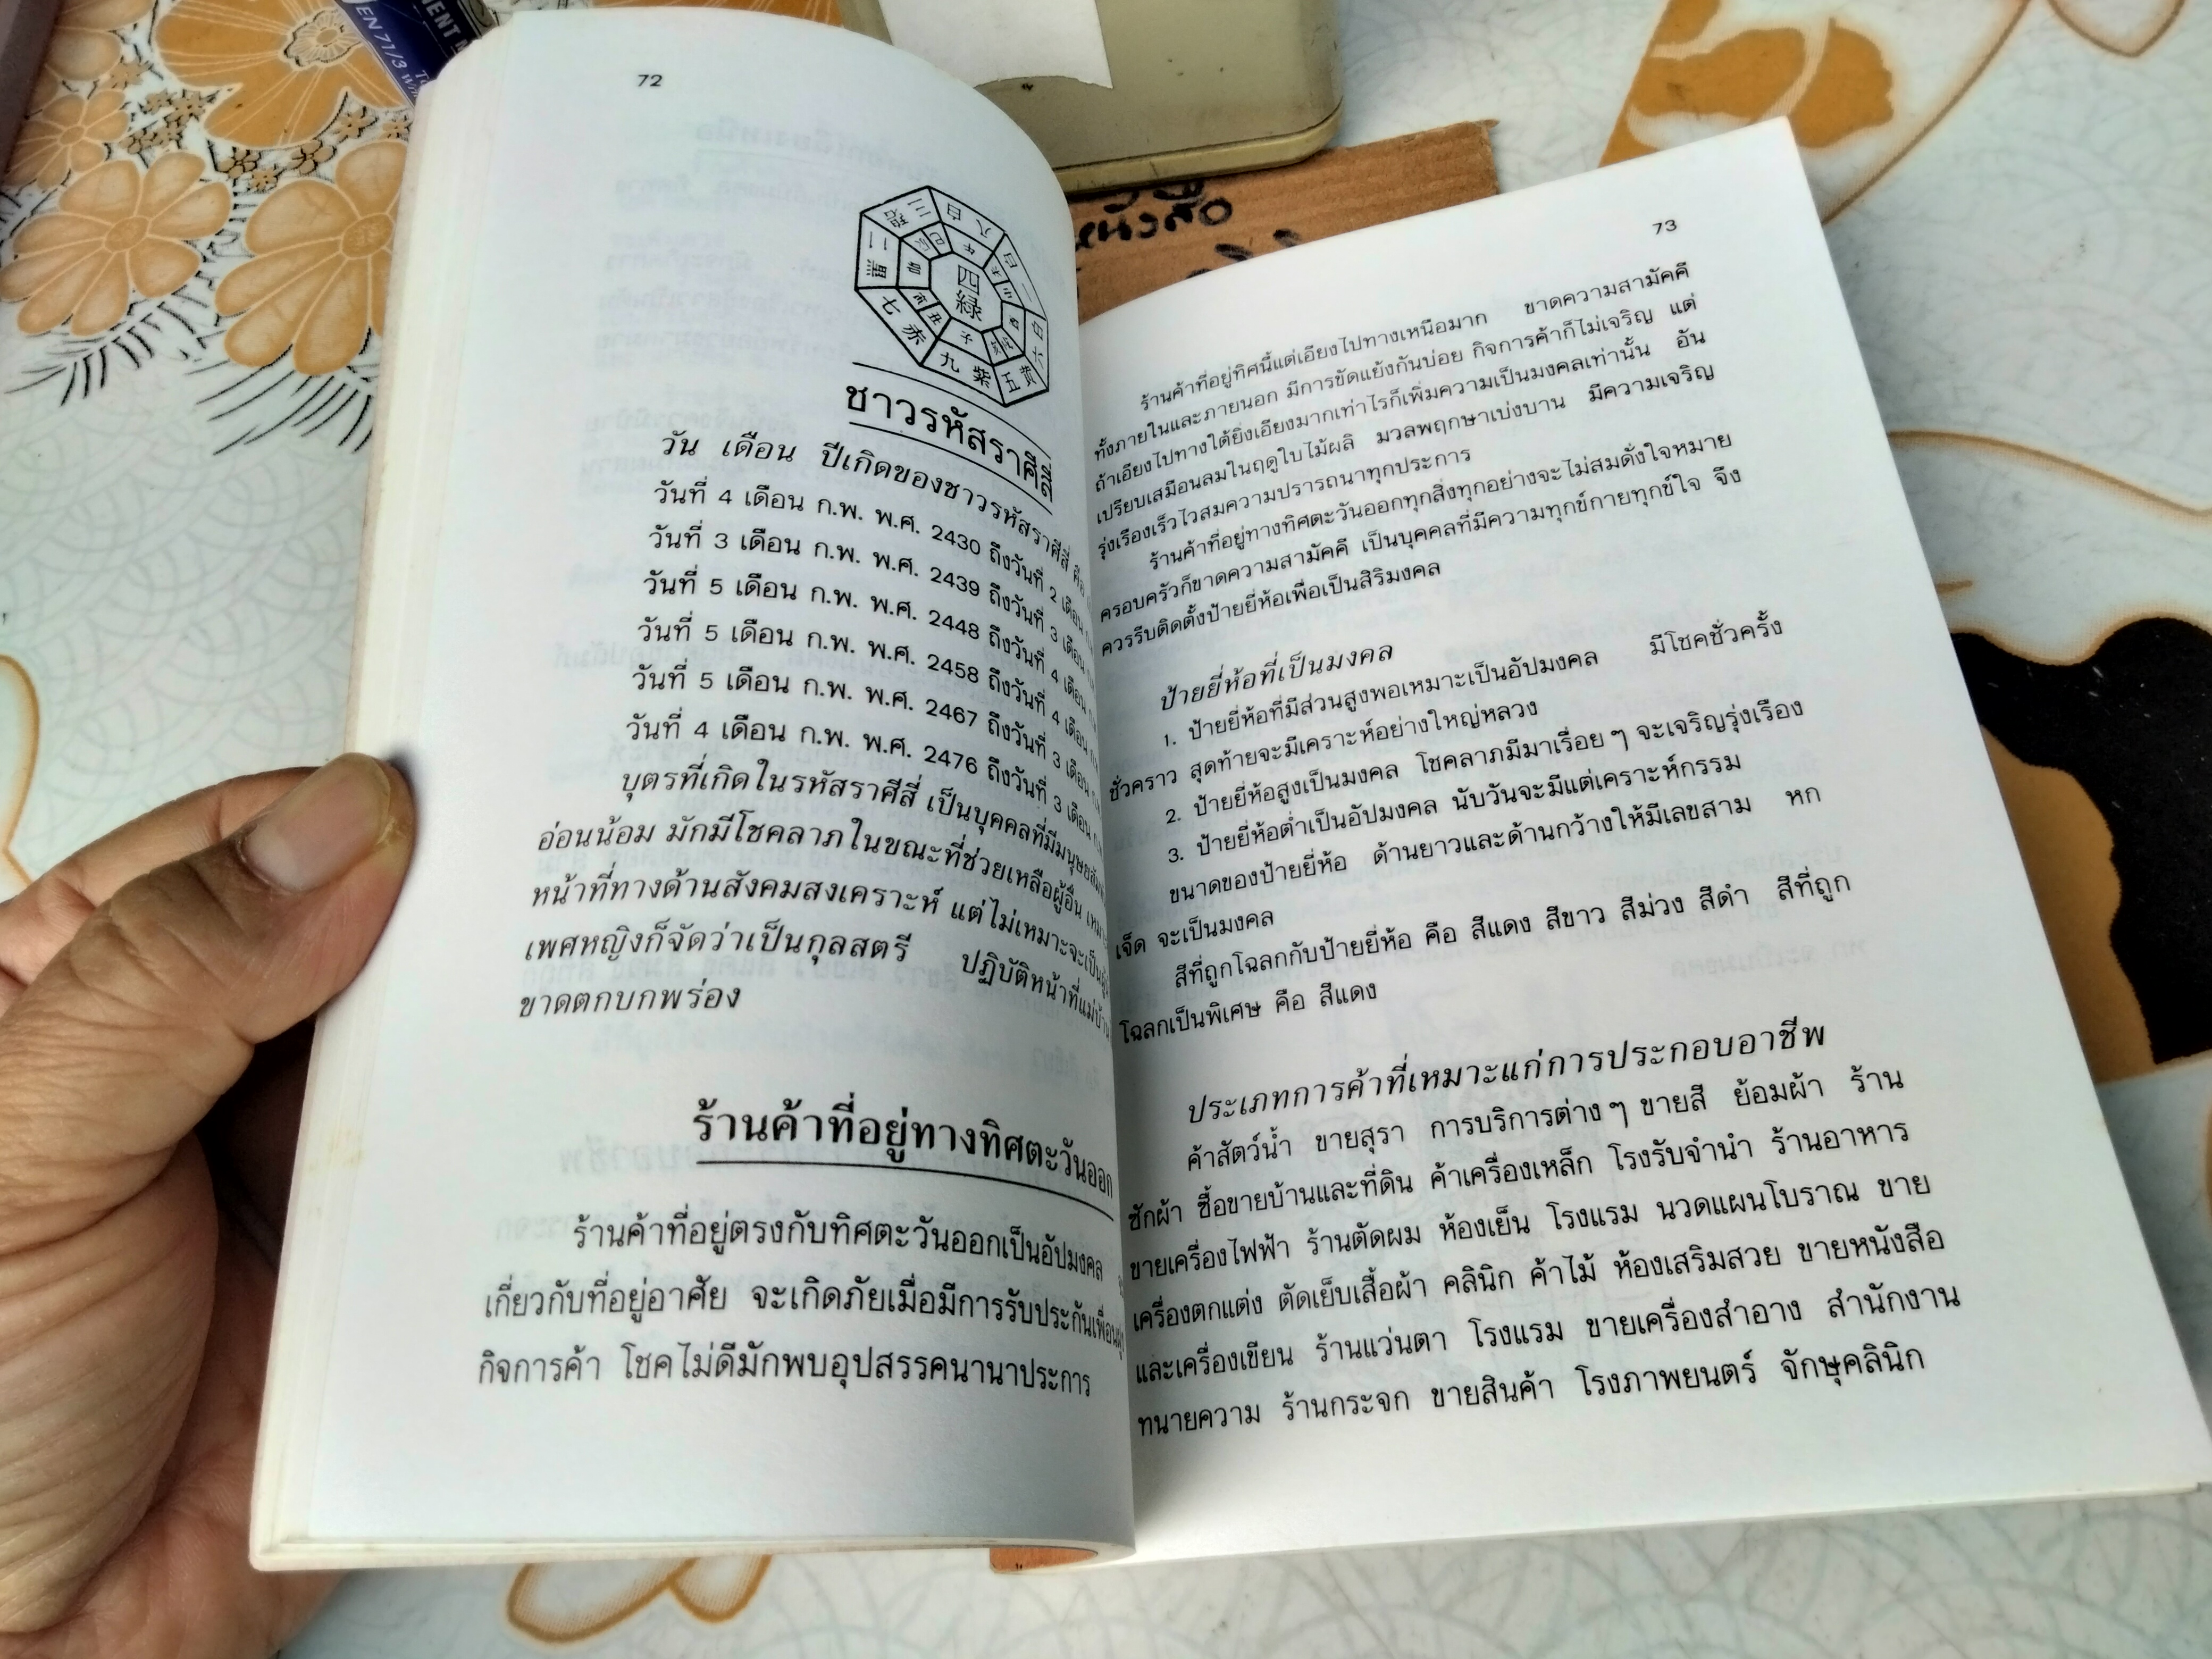 EN 71/3
หนังสือ
72
三 碧
八 白
二 黒
四 緑
七 赤
九 紫
五 黄
六 白
ชาวรหัสราศีสี่
วัน เดือน ปีเกิดของชาวรหัสราศีสี่ คือ
วันที่ 4 เดือน ก.พ. พ.ศ. 2430 ถึงวันที่ 2 เดือน
วันที่ 3 เดือน ก.พ. พ.ศ. 2439 ถึงวันที่ 3 เดือน
วันที่ 5 เดือน ก.พ. พ.ศ. 2448 ถึงวันที่ 4 เดือน
วันที่ 5 เดือน ก.พ. พ.ศ. 2458 ถึงวันที่ 4 เดือน
วันที่ 5 เดือน ก.พ. พ.ศ. 2467 ถึงวันที่ 3 เดือน
วันที่ 4 เดือน ก.พ. พ.ศ. 2476 ถึงวันที่ 3 เดือน
บุตรที่เกิดในรหัสราศีสี่ เป็นบุคคลที่มีมนุษยสัมพั
อ่อนน้อม มักมีโชคลาภในขณะที่ช่วยเหลือผู้อื่น
หน้าที่ทางด้านสังคมสงเคราะห์ แต่ไม่เหมาะจะเป็น
เพศหญิงก็จัดว่าเป็นกุลสตรี ปฏิบัติหน้าที่แม่บ้าน
ขาดตกบกพร่อง
ร้านค้าที่อยู่ทางทิศตะวันออก
ร้านค้าที่อยู่ตรงกับทิศตะวันออกเป็นอัปมงคล
เกี่ยวกับที่อยู่อาศัย จะเกิดภัยเมื่อมีการรับประกันเพื่อน
กิจการค้า โชคไม่ดีมักพบอุปสรรคนานาประการ
73
ร้านค้าที่อยู่ทิศนี้แต่เอียงไปทางเหนือมาก ขาดความสามัคคี
ทั้งภายในและภายนอก มีการขัดแย้งกันบ่อย กิจการค้าก็ไม่เจริญ แต่
ถ้าเอียงไปทางใต้ยิ่งเอียงมากเท่าไรก็เพิ่มความเป็นมงคลเท่านั้น อัน
เปรียบเสมือนลมในฤดูใบไม้ผลิ มวลพฤกษาเบ่งบาน มีความเจริญ
รุ่งเรืองเร็วไวสมความปรารถนาทุกประการ
ร้านค้าที่อยู่ทางทิศตะวันออกทุกสิ่งทุกอย่างจะไม่สมดั่งใจหมาย
ครอบครัวก็ขาดความสามัคคี เป็นบุคคลที่มีความทุกข์กายทุกข์ใจ จึง
ควรรีบติดตั้งป้ายยี่ห้อเพื่อเป็นสิริมงคล
ป้ายยี่ห้อที่เป็นมงคล
1. ป้ายยี่ห้อที่มีส่วนสูงพอเหมาะเป็นอัปมงคล มีโชคชั่วครั้ง
ชั่วคราว สุดท้ายจะมีเคราะห์อย่างใหญ่หลวง
2. ป้ายยี่ห้อสูงเป็นมงคล โชคลาภมีมาเรื่อย ๆ จะเจริญรุ่งเรือง
3. ป้ายยี่ห้อต่ำเป็นอัปมงคล นับวันจะมีแต่เคราะห์กรรม
ขนาดของป้ายยี่ห้อ ด้านยาวและด้านกว้างให้มีเลขสาม หก
เจ็ด จะเป็นมงคล
สีที่ถูกโฉลกกับป้ายยี่ห้อ คือ สีแดง สีขาว สีม่วง สีดำ สีที่ถูก
โฉลกเป็นพิเศษ คือ สีแดง
ประเภทการค้าที่เหมาะแก่การประกอบอาชีพ
ค้าสัตว์น้ำ ขายสุรา การบริการต่าง ๆ ขายสี ย้อมผ้า ร้าน
ซักผ้า ซื้อขายบ้านและที่ดิน ค้าเครื่องเหล็ก โรงรับจำนำ ร้านอาหาร
ขายเครื่องไฟฟ้า ร้านตัดผม ห้องเย็น โรงแรม นวดแผนโบราณ ขาย
เครื่องตกแต่ง ตัดเย็บเสื้อผ้า คลินิก ค้าไม้ ห้องเสริมสวย ขายหนังสือ
และเครื่องเขียน ร้านแว่นตา โรงแรม ขายเครื่องสำอาง สำนักงาน
ทนายความ ร้านกระจก ขายสินค้า โรงภาพยนตร์ จักษุคลินิก